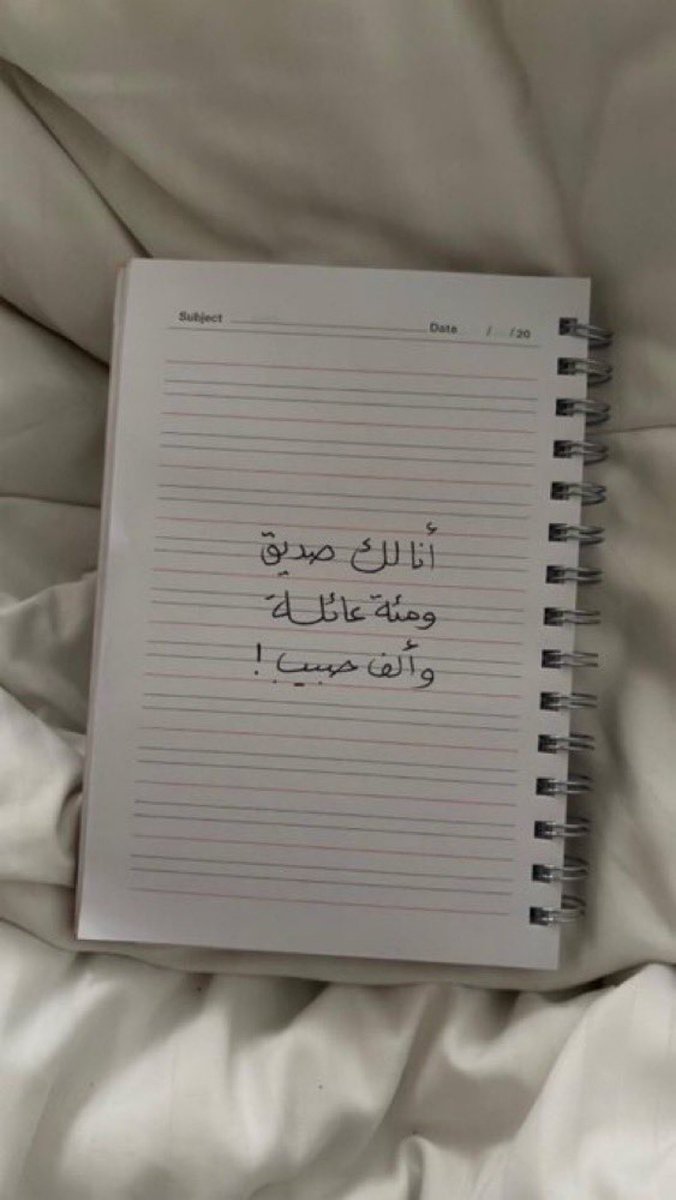 Subject
Date / / 20
أنا لك صديق
ومئة عائلة
وألف حبيب !